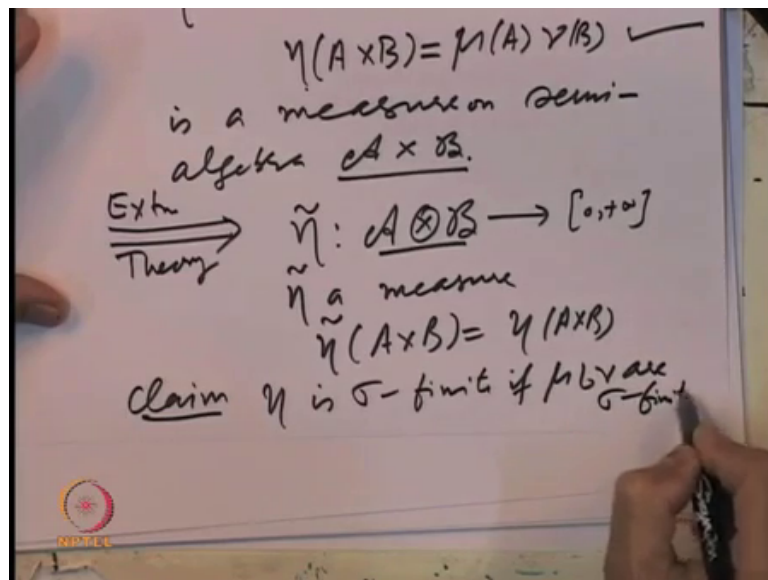 η(A×B)=μ(A) ν(B)
is a measure on semi-
algebra A × B.
Extn
Theory
η̃ : A ⊗ B → [0,+∞]
η̃ a measure
η̃(A×B)= η(A×B)
Claim η is σ-finite if μ & ν are
σ-finit
NPTEL